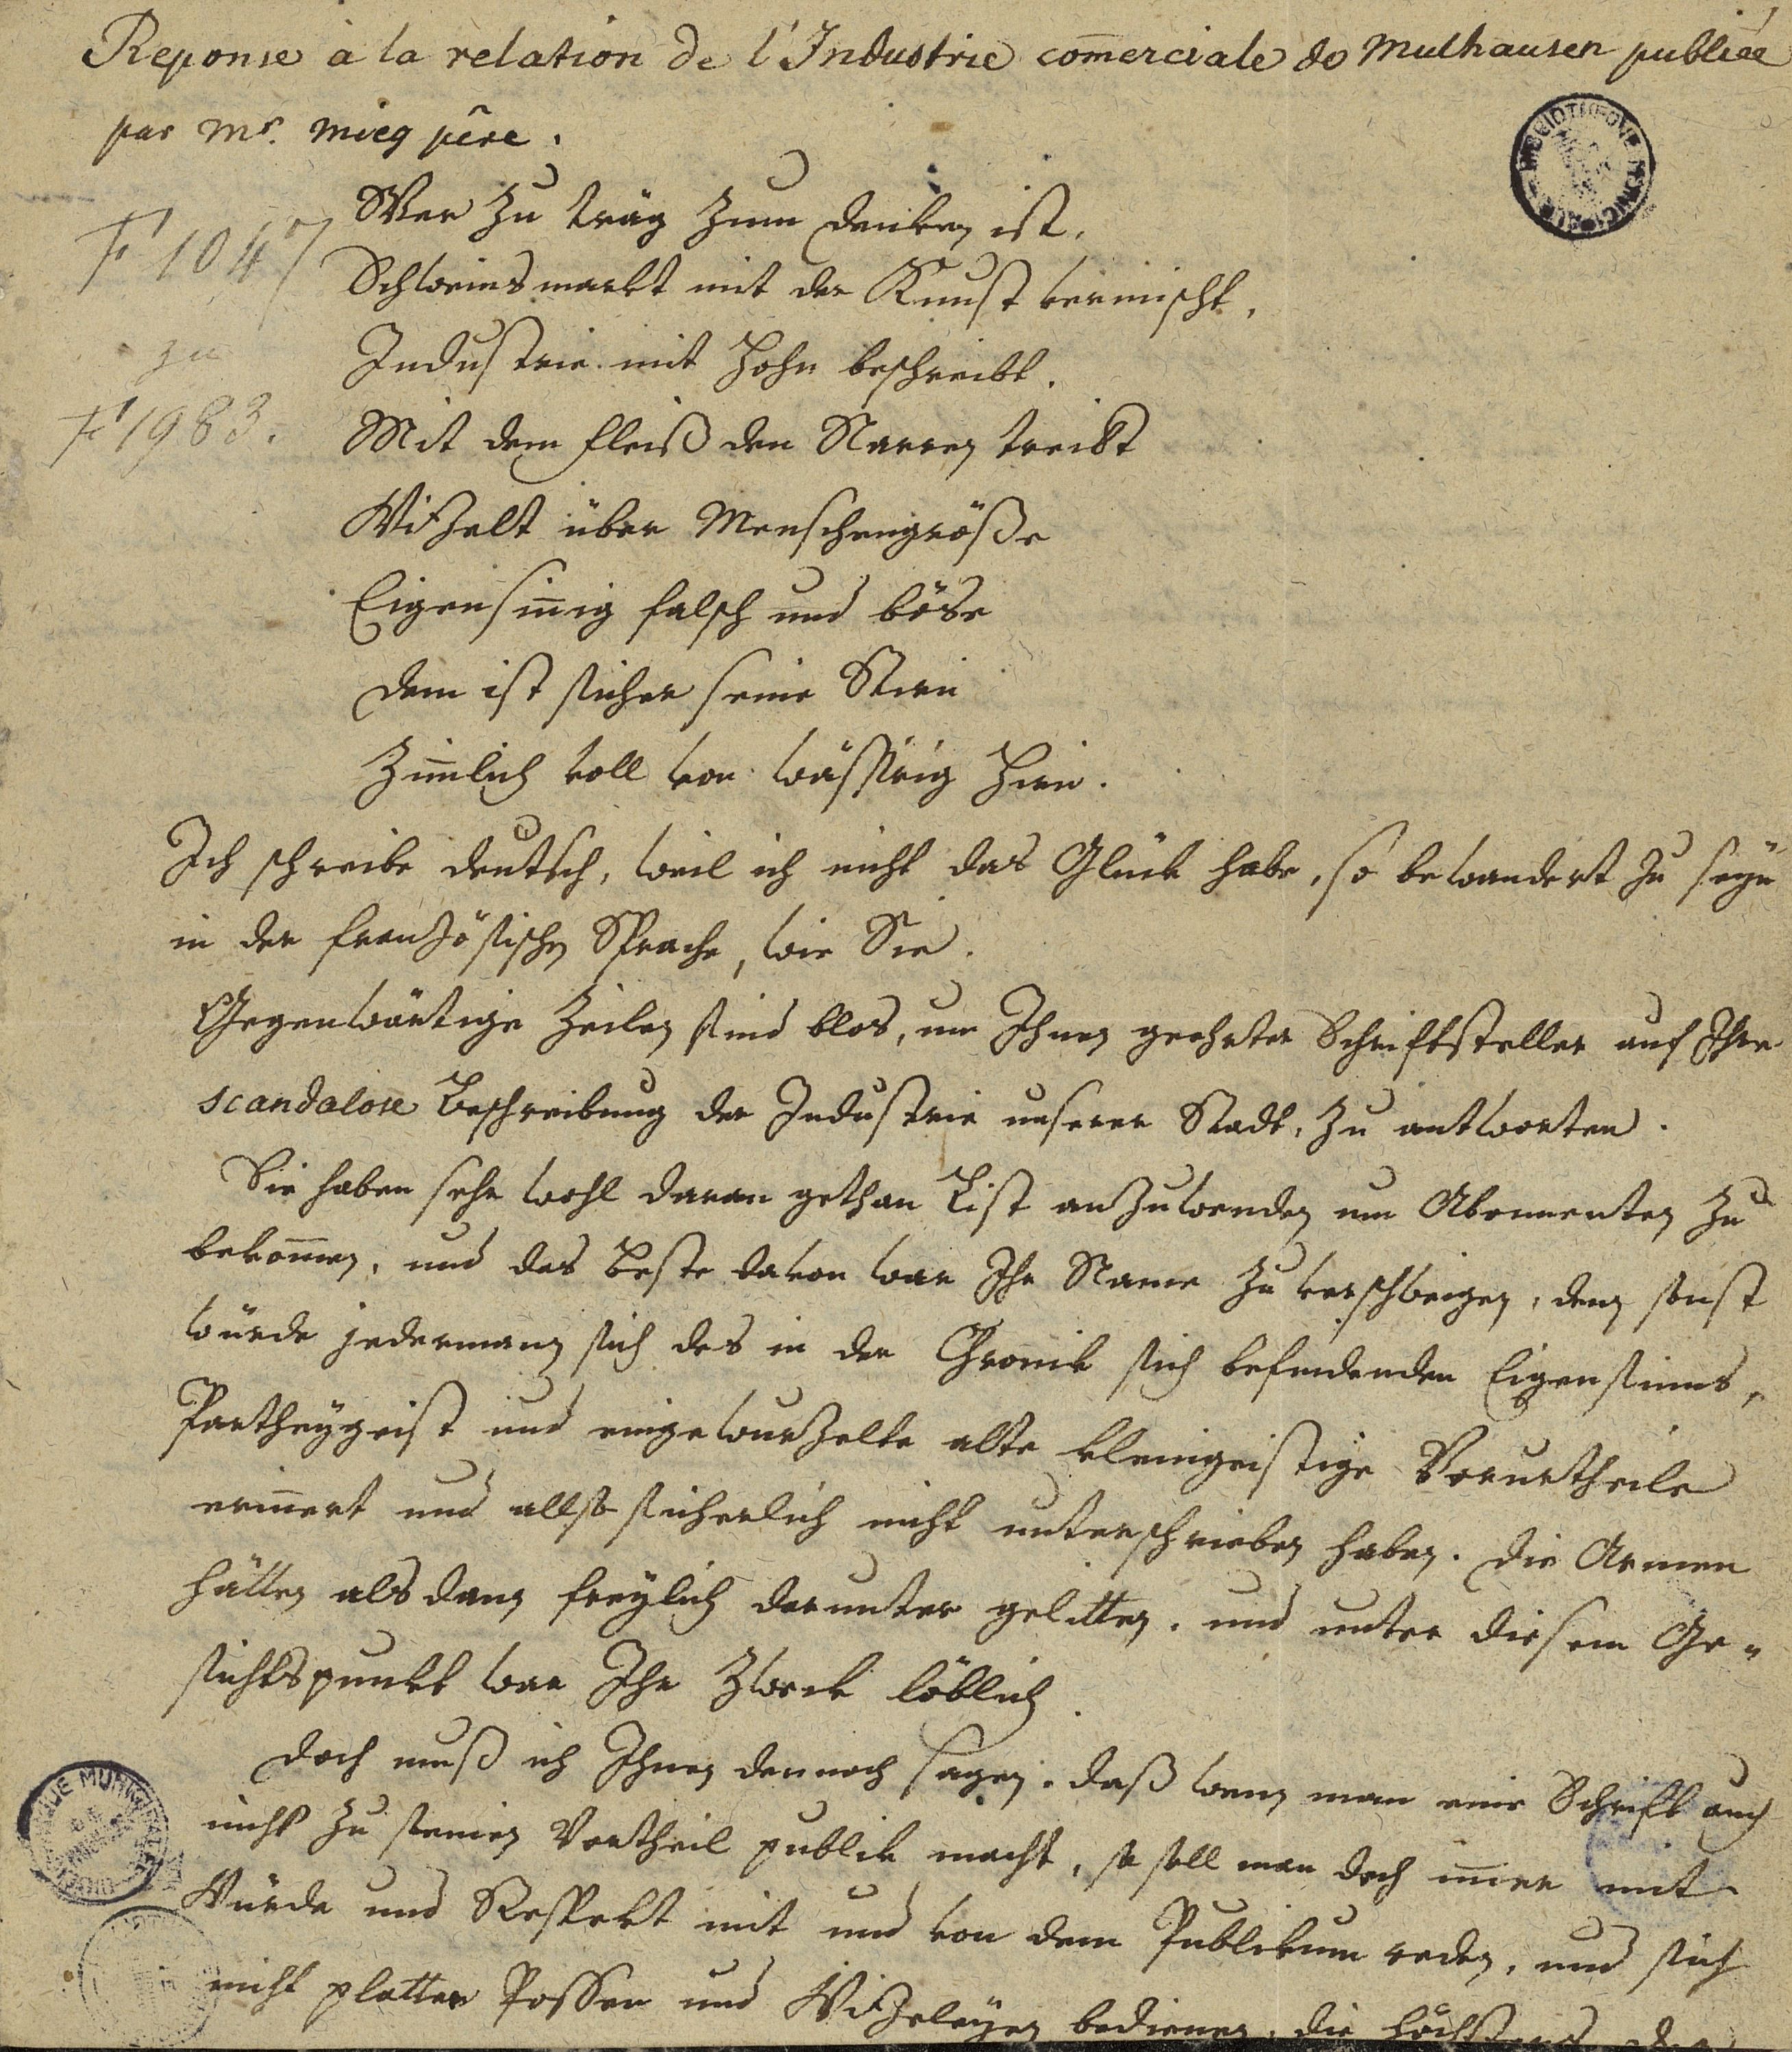 Reponse à la relation de l'Industrie com̅erciale de Mulhausen publiée
par Mr. Mieg pêre.
F 1047
zu
F 1983.
BIBLIOTHEQUE MUNICIPALE
Wer zu träg zum denken ist,
Schweinsmarkt mit der Kunst vermischt,
Industrie mit Hohn beschreibt.
Mit dem Fleiß den Narren treibt
Witzelt über Menschengröße
Eigensin̅ig falsch und böse
dem ist sicher seine Stirn
Zim̅lich voll von wässrig Hirn.
Ich schreibe deutsch, weil ich nicht das Glück habe, so bewandert zu seyn
in der französischen Sprache, wie Sie.
Gegenwärtige Zeilen sind blos, um Ihnen geehrter Schriftsteller auf Ihre
scandalose Beschreibung der Industrie unserer Stadt, zu antworten.
Sie haben sehr wohl daran gethan List anzuwenden um Abonnenten zu
bekom̅en, und das Beste davon war Ihr Name zu verschweigen, denn sonst
würde jedermann sich des in der Chronik sich befindenden Eigensinns,
Partheygeist und eingewurzelte alte kleingeistige Vorurtheile
erin̅ert und allso sicherlich nicht unterschrieben haben. die Armen
hätten alsdann freylich darunter gelitten, und unter diesem Ge-
sichtspunkt war Ihr Zweck löblich.
doch muß ich Ihnen dennoch sagen, daß wenn man eine Schrift auch
nicht zu seinen Vortheil publik macht, so soll man doch im̅er mit
Würde und Respekt mit und von dem Publikum reden, und sich
nicht platter Possen und Witzeleyen bedienen, die höchstens